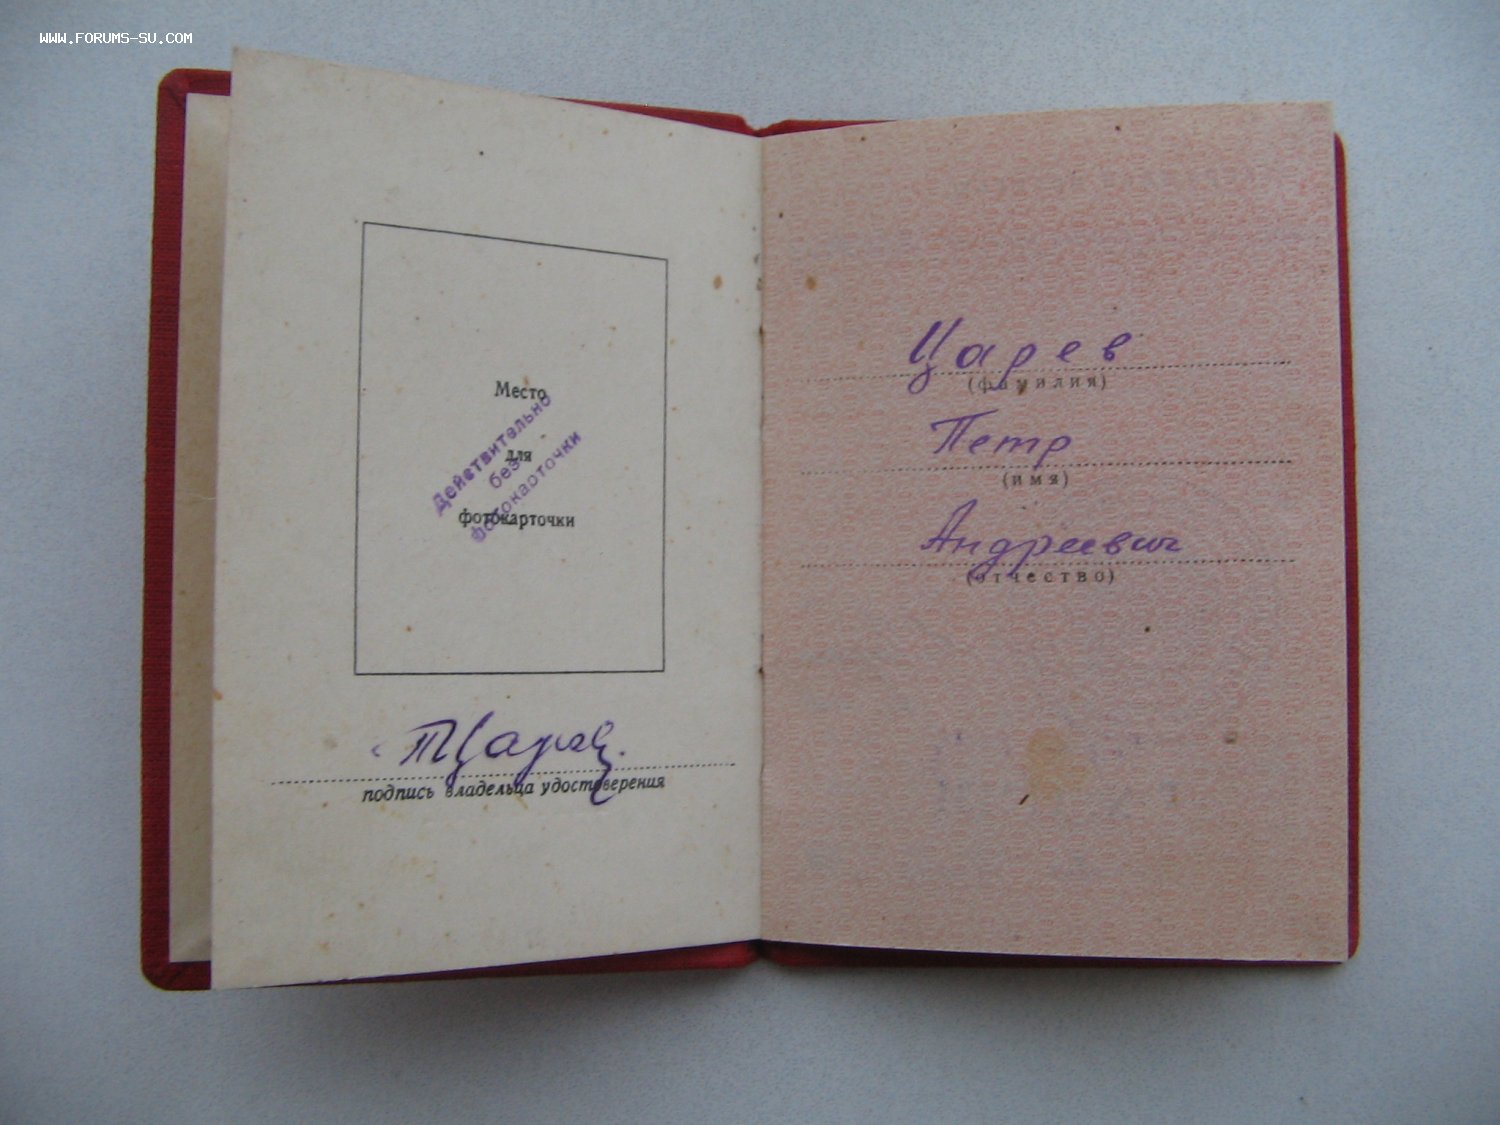 WWW.FORUMS-SU.COM
Место
для
фотокарточки
Действительно
без
фотокарточки
подпись владельца удостоверения
Царев
(фамилия)
Петр
(имя)
Андреевич
(отчество)